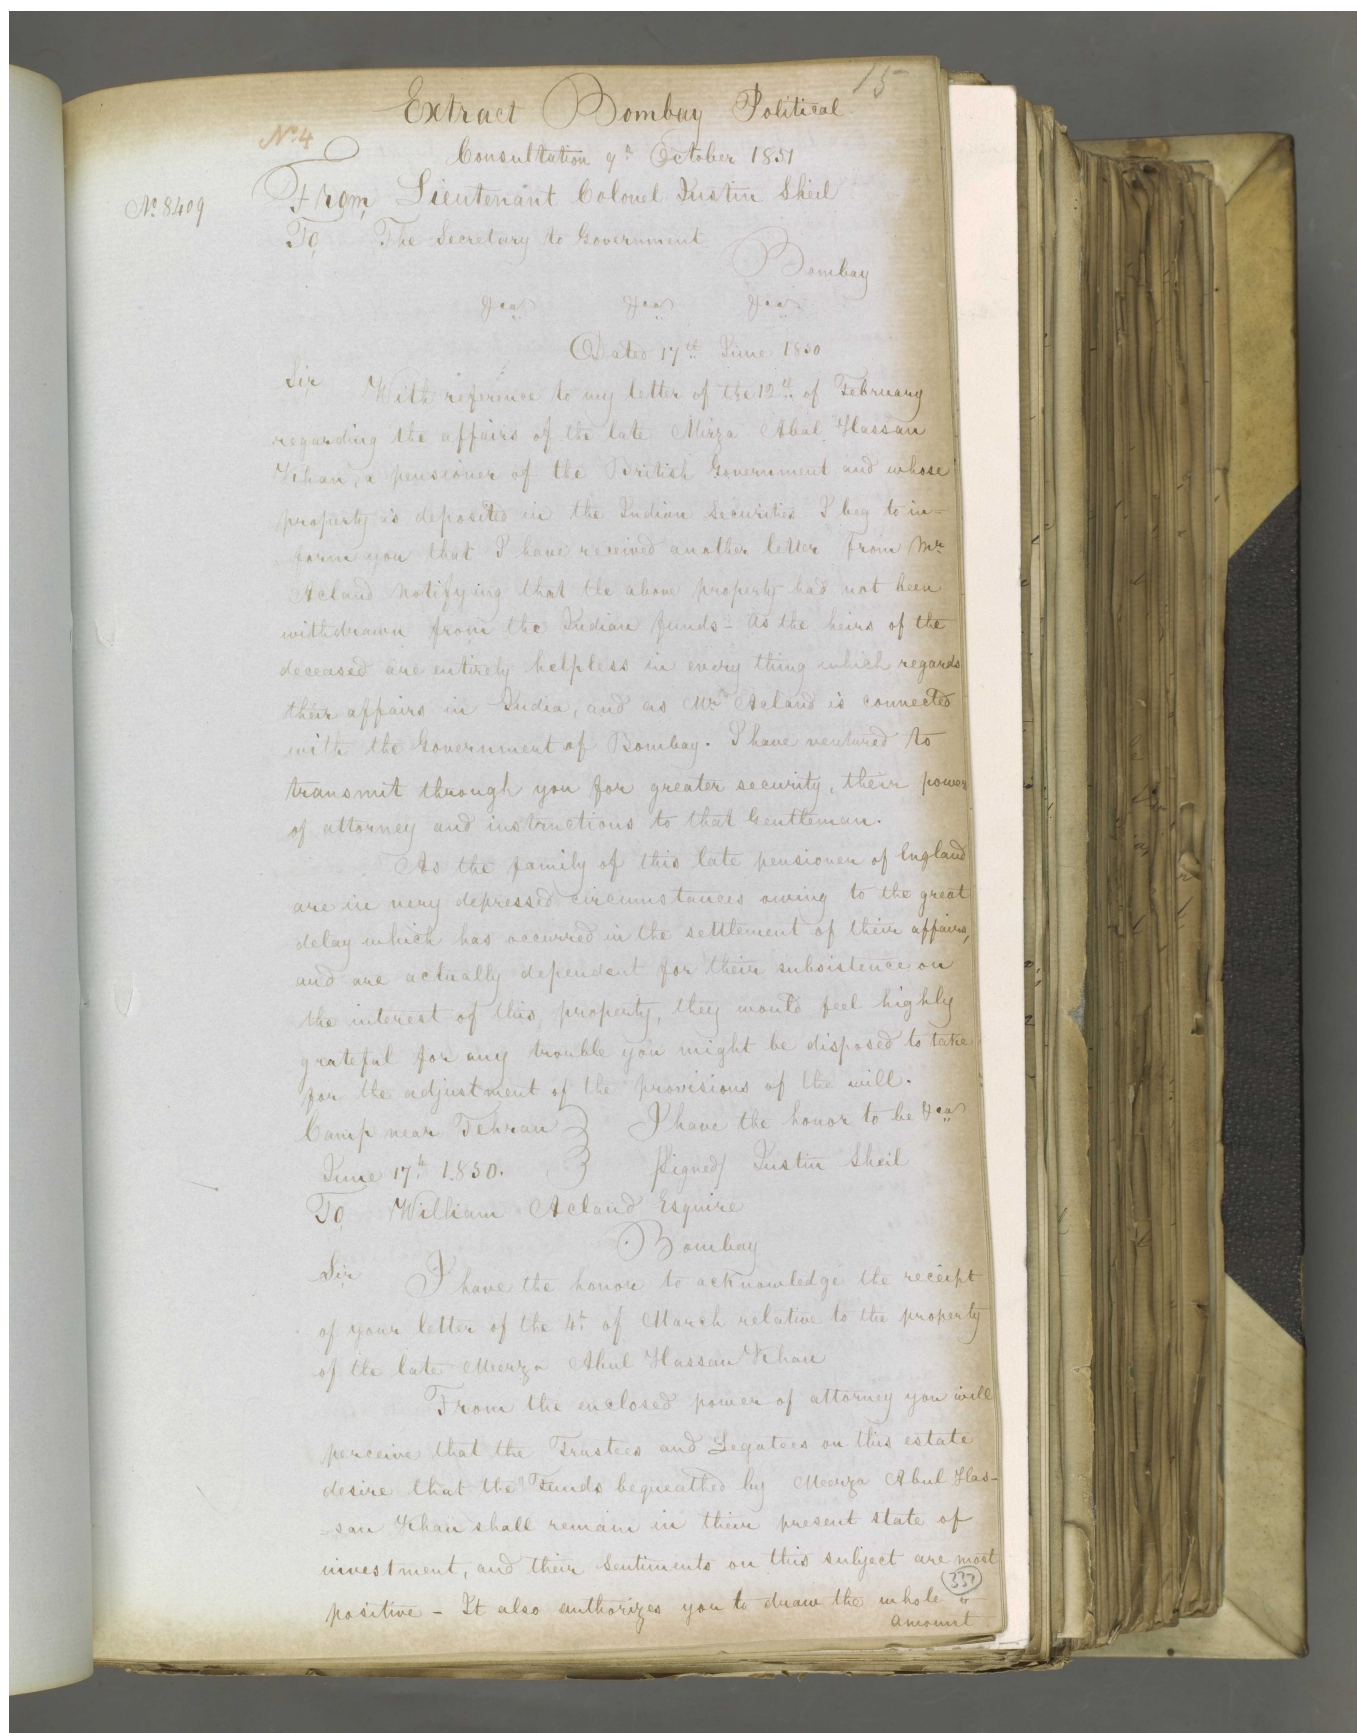 15
Extract Bombay Political
No. 4
Consultation 9th October 1851
No. 8409
From Lieutenant Colonel Justin Sheil
To The Secretary to Government
Bombay
&ca &ca &ca
Dated 17th June 1850
Sir With reference to my letter of the 12th of February
regarding the affairs of the late Mirza Abul Hassan
Khan, a pensioner of the British Government and whose
property is deposited in the Indian Securities I beg to in=
form you that I have received another letter from Mr
Acland notifying that the above property had not been
withdrawn from the Indian funds - As the heirs of the
deceased are entirely helpless in every thing which regards
their affairs in India, and as Mr Acland is connected
with the Government of Bombay. I have ventured to
transmit through you for greater security, their power
of attorney and instructions to that Gentleman.
As the family of this late pensioner of England
are in very depressed circumstances owing to the great
delay which has occurred in the settlement of their affairs,
and are actually dependent for their subsistence on
the interest of this, property, they would feel highly
grateful for any trouble you might be disposed to take
for the adjustment of the provisions of the will.
Camp near Tehran } I have the honor to be &ca
June 17th 1850. } /Signed/ Justin Sheil
To William Acland Esquire
Bombay
Sir I have the honor to acknowledge the receipt
of your letter of the 4th of March relative to the property
of the late Meerza Abul Hassan Khan
From the enclosed power of attorney you will
perceive that the Trustees and Legatees on this estate
desire that the Funds bequeathed by Meerza Abul Has-
-san Khan shall remain in their present state of
investment, and their sentiments on this subject are most
positive - It also authorizes you to draw the whole
amount
337